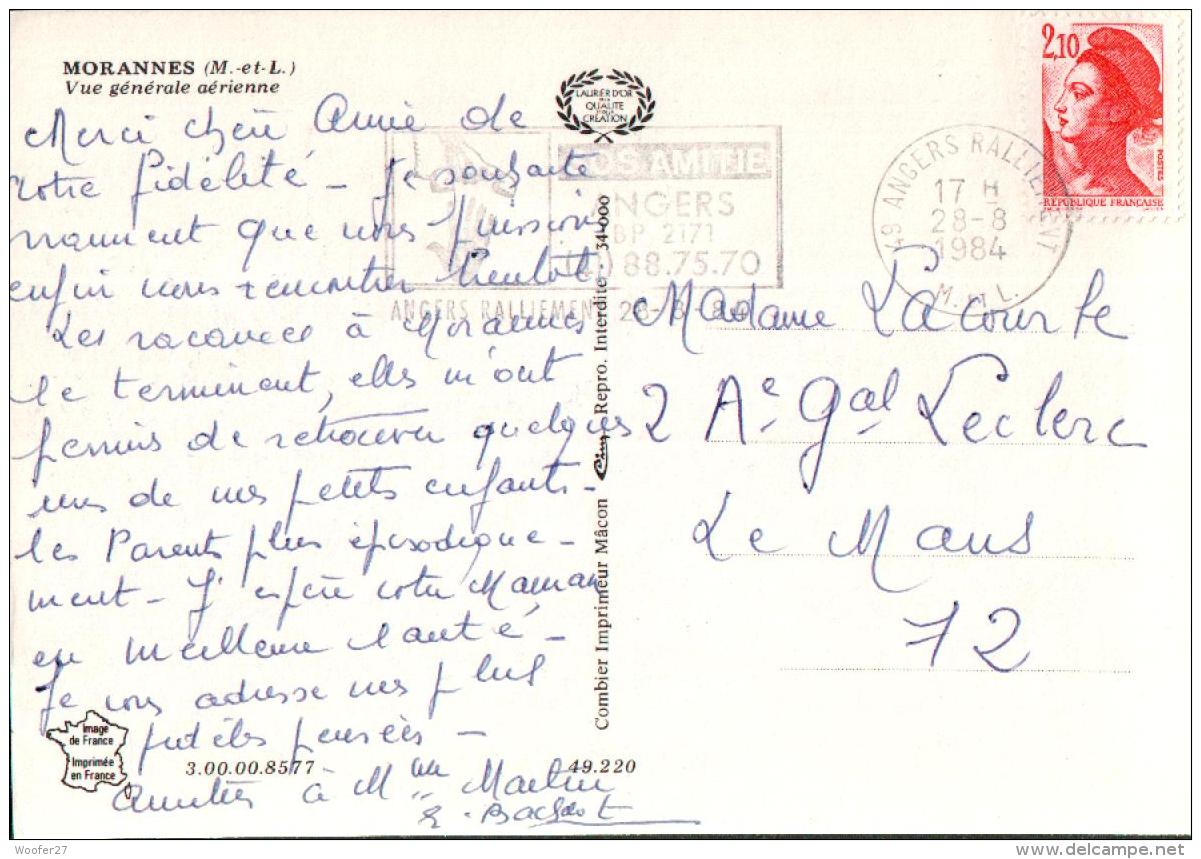 MORANNES (M.-et-L.)
Vue générale aérienne
LAURIER D'OR
DE LA
QUALITÉ
CRÉATION
2,10
POSTES
RÉPUBLIQUE FRANÇAISE
49 ANGERS RALLIEMENT
17 H
28-8
1984
M. ET L.
SOS AMITIE
ANGERS
BP 2171
88.75.70
ANGERS RALLIEMENT 28-8-84
Merci chère Annie de
votre fidélité - Je souhaite
vraiment que nous puissions
enfin nous rencontrer bientôt.
Les vacances à Morannes
se terminent, elles m'ont
permis de retrouver quelques
uns de mes petits enfants -
les Parents plus épisodique-
ment - J'espère votre Maman
en meilleure santé -
Je vous adresse mes plus
fidèles pensées -
Amitiés à Mme Martin
Madame Lacourte
2 Ae Gal Leclerc
Le Mans
72
Combier Imprimeur Mâcon Cim Repro. Interdite 34-000
Image
de France
Imprimée
en France
3.00.00.8577
49.220
Woofer27
delcampe.net